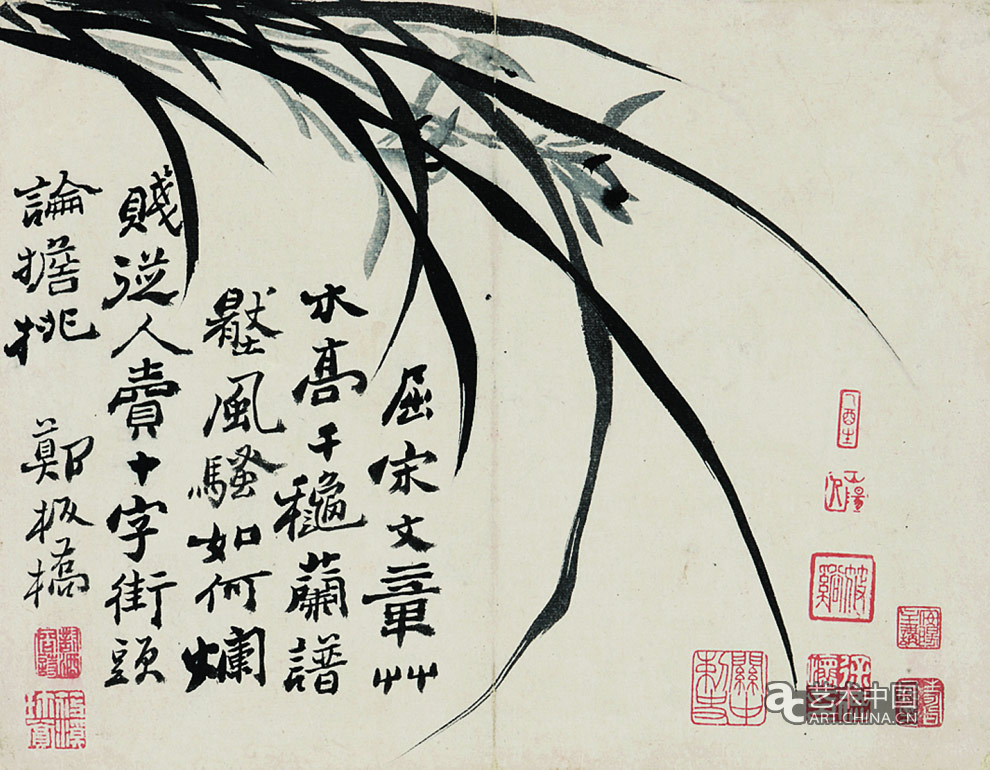 屈宋文章艸
木高千穐蘭譜
壓風騷如何爛
賤從人賣十字街頭
論擔挑
鄭板橋
ac
艺术中国
ART.CHINA.CN